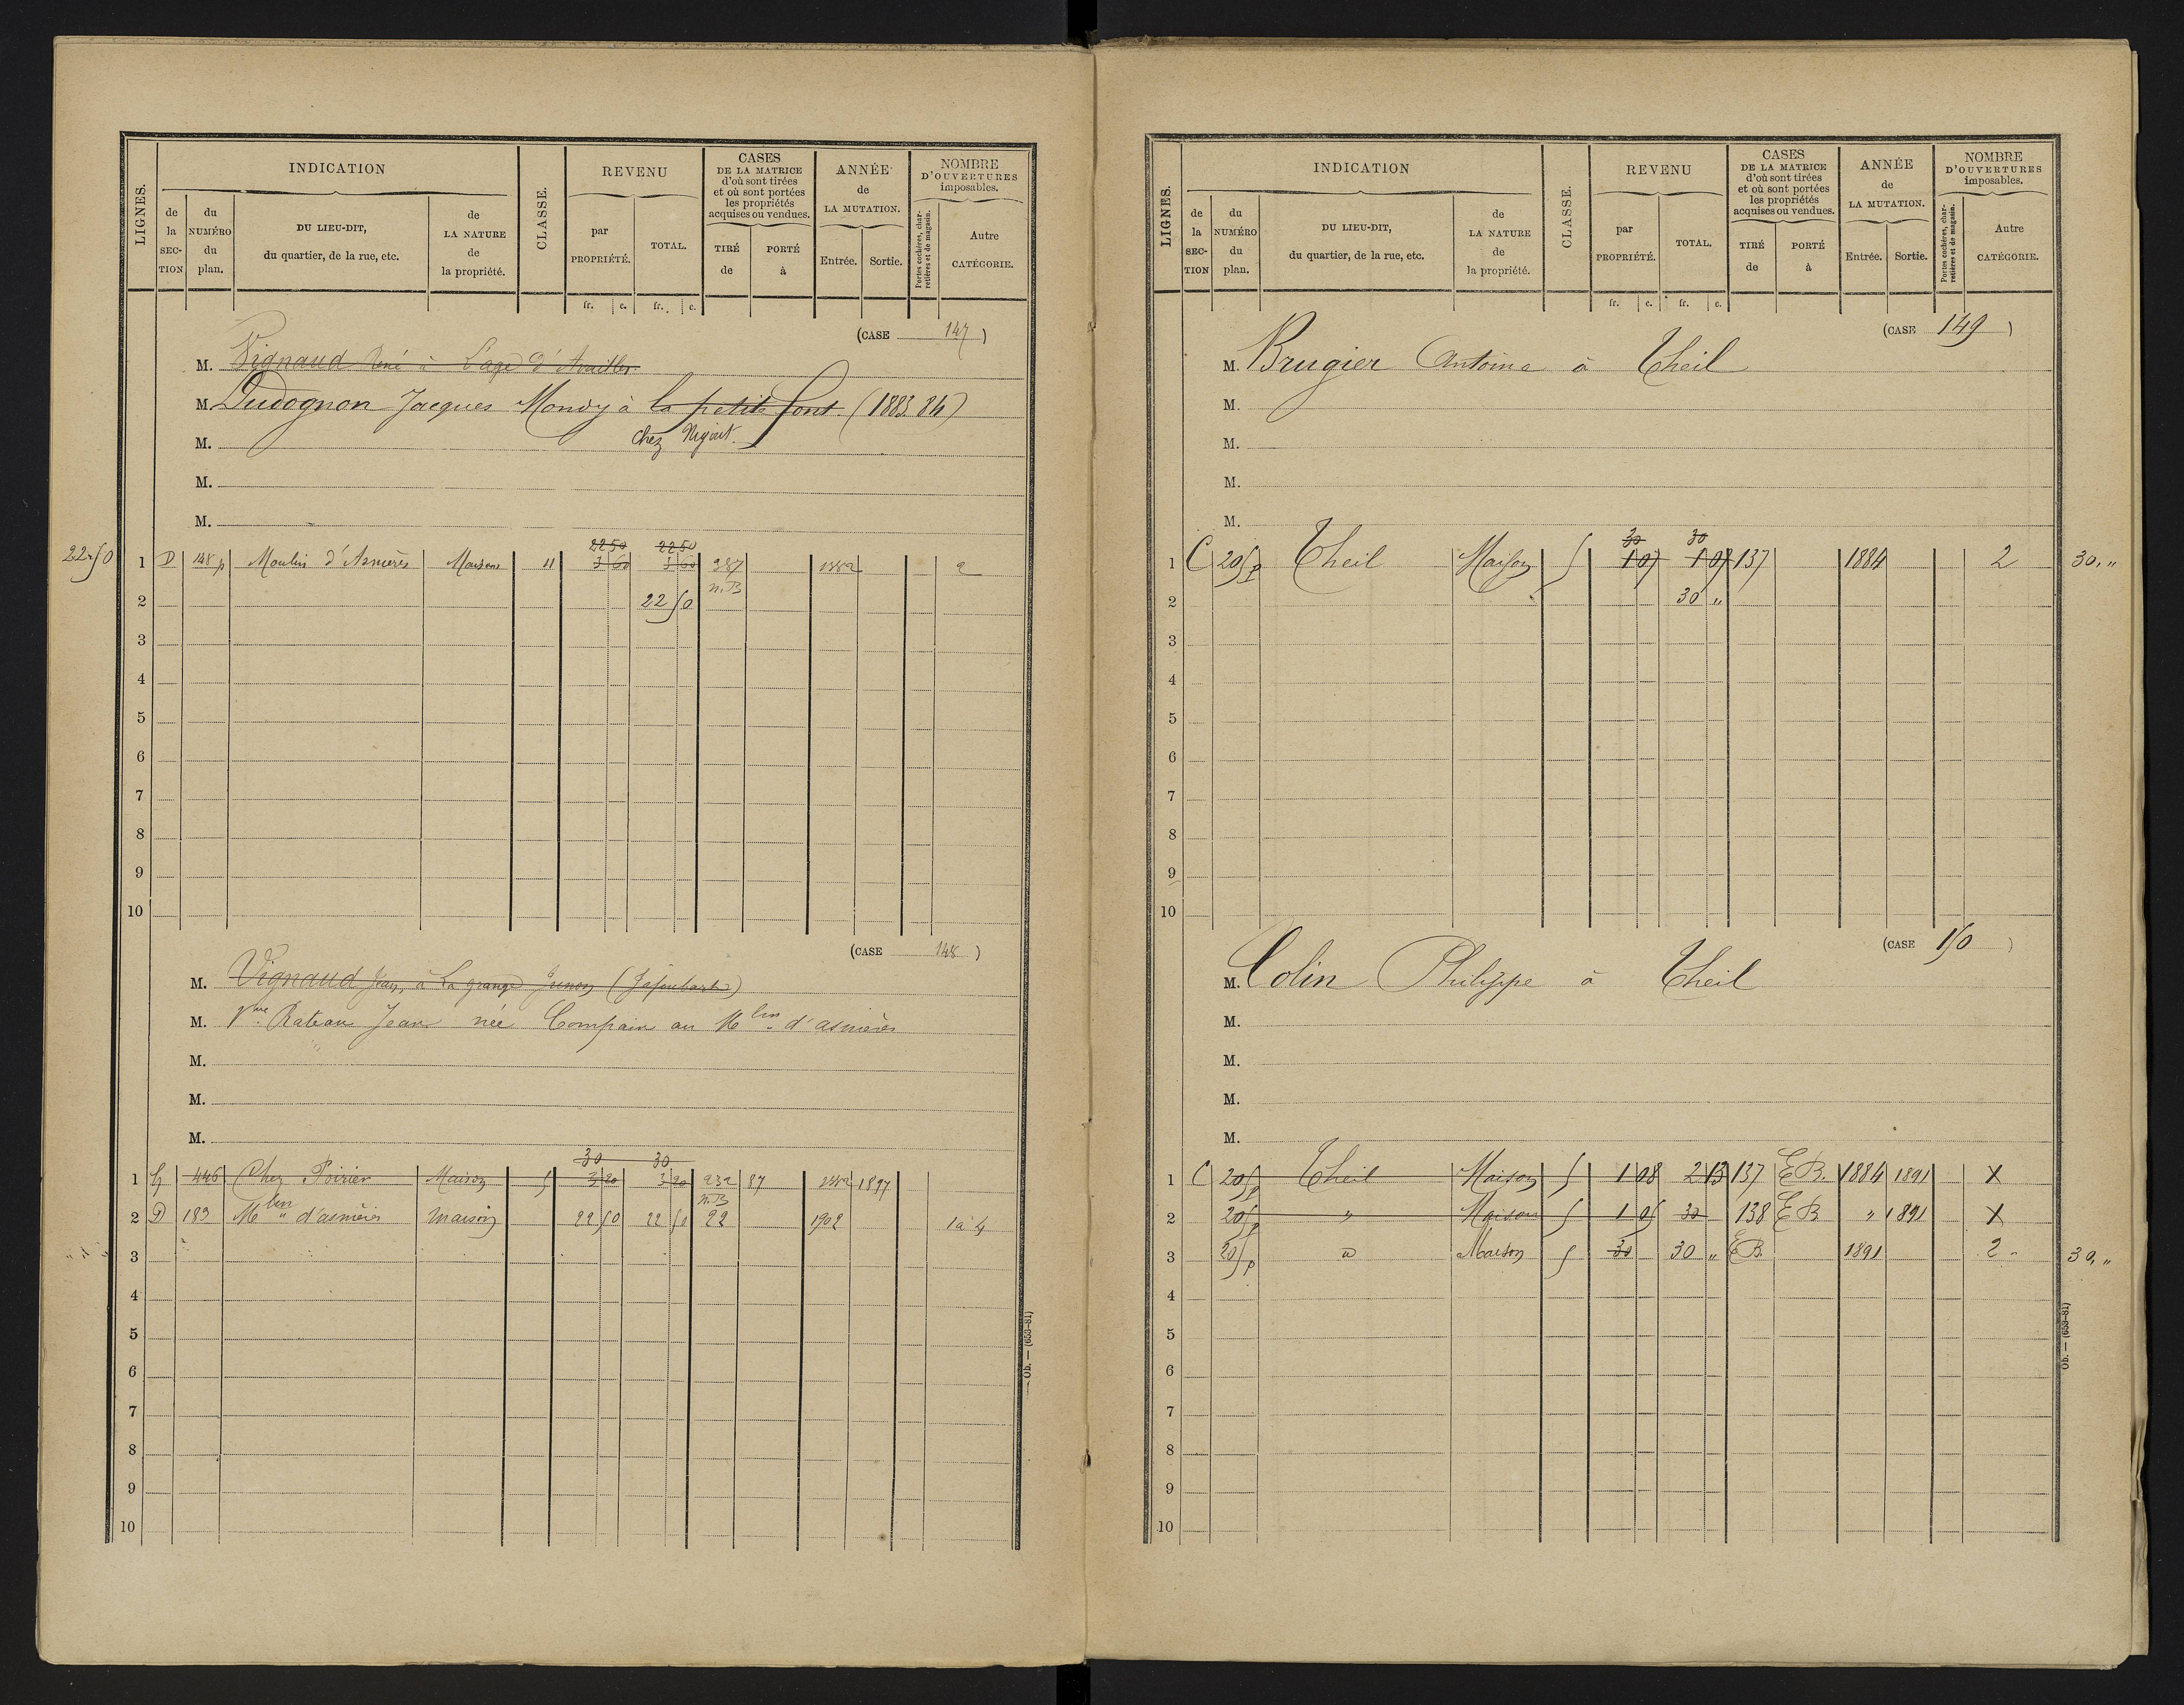 LIGNES. INDICATION CLASSE. REVENU CASES DE LA MATRICE d'où sont tirées et où sont portées les propriétés acquises ou vendues. ANNÉE de LA MUTATION. NOMBRE D'OUVERTURES imposables.
de la SEC-TION du NUMÉRO du plan. DU LIEU-DIT, du quartier, de la rue, etc. de LA NATURE de la propriété. par PROPRIÉTÉ. TOTAL. TIRÉ de PORTÉ à Entrée. Sortie. Portes cochères, charretières et de magasin. Autre CATÉGORIE.
fr. c. fr. c.
(CASE 147)
M. Vignaud René à L'age d'Availles
M. Dudognon Jacques Mondy à la petite font. (1883.84)
M. chez Nigout.
M.
M.
22 50 22 50
22.50 1 D 148 p Moulin d'Asnières Maison 11 3 60 3 60 387 1882 2
n.B
2 22 50
3
4
5
6
7
8
9
10
(CASE 148)
M. Vignaud Jean, à La grange
M. Vve Rateau Jean née Compain au Mlin d'asnières
M.
M.
M.
30 30
1 G 446 Chez Poirier Maison 5 3 20 3 20 232 87 1882 1897
n.B
2 D 183 Mlin d'asnières maison 22 50 22 50 22 1902 1 à 4
3
4
5
6
7
8
9
10
Ob. — (653-81)
LIGNES. INDICATION CLASSE. REVENU CASES DE LA MATRICE d'où sont tirées et où sont portées les propriétés acquises ou vendues. ANNÉE de LA MUTATION. NOMBRE D'OUVERTURES imposables.
de la SEC-TION du NUMÉRO du plan. DU LIEU-DIT, du quartier, de la rue, etc. de LA NATURE de la propriété. par PROPRIÉTÉ. TOTAL. TIRÉ de PORTÉ à Entrée. Sortie. Portes cochères, charretières et de magasin. Autre CATÉGORIE.
fr. c. fr. c.
(CASE 149)
M. Brugier Antoine à Theil
M.
M.
M.
M.
30 30
1 C 205p Theil Maison 5 1 07 1 07 137 1884 2 30. "
2 30 "
3
4
5
6
7
8
9
10
(CASE 150)
M. Colin Philippe à Theil
M.
M.
M.
M.
1 C 205p Theil Maison 5 1 08 2 13 137 EB. 1884 1891 X
2 205p " Maison 5 1 05 30 138 EB " 1891 X
3 205p " Maison 5 30 30 " EB. 1891 2 30, "
4
5
6
7
8
9
10
Ob. — (653-81)